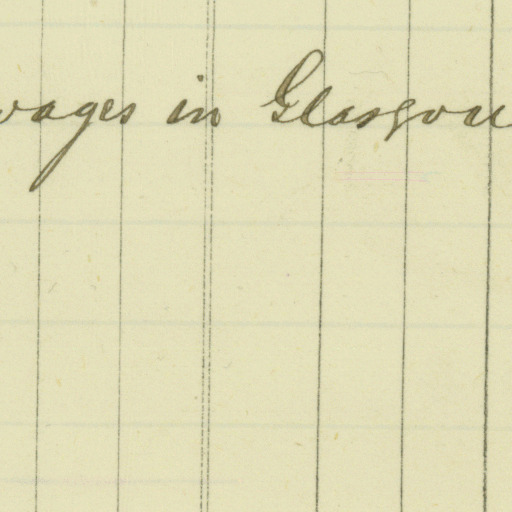 wages in Glasgow